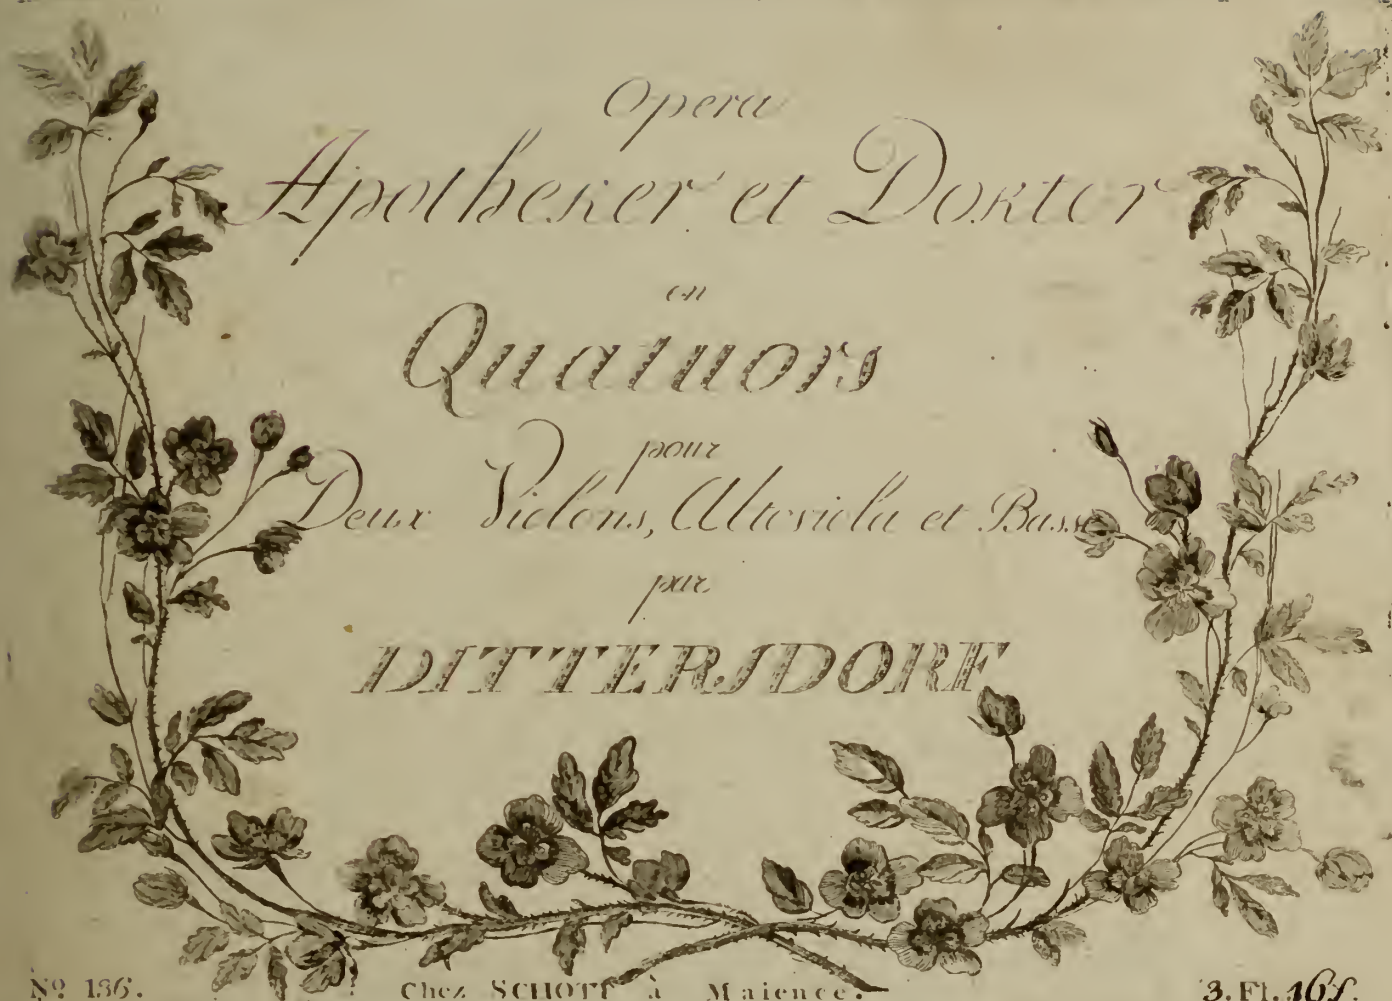 Opera
Apotheker et Doktor
en
Quatuors
pour
Deux Violons, Altoviola et Basse
par
DITTERSDORF
Nº 136. Chez SCHOTT à Maience. 3. Fl. 16 f.